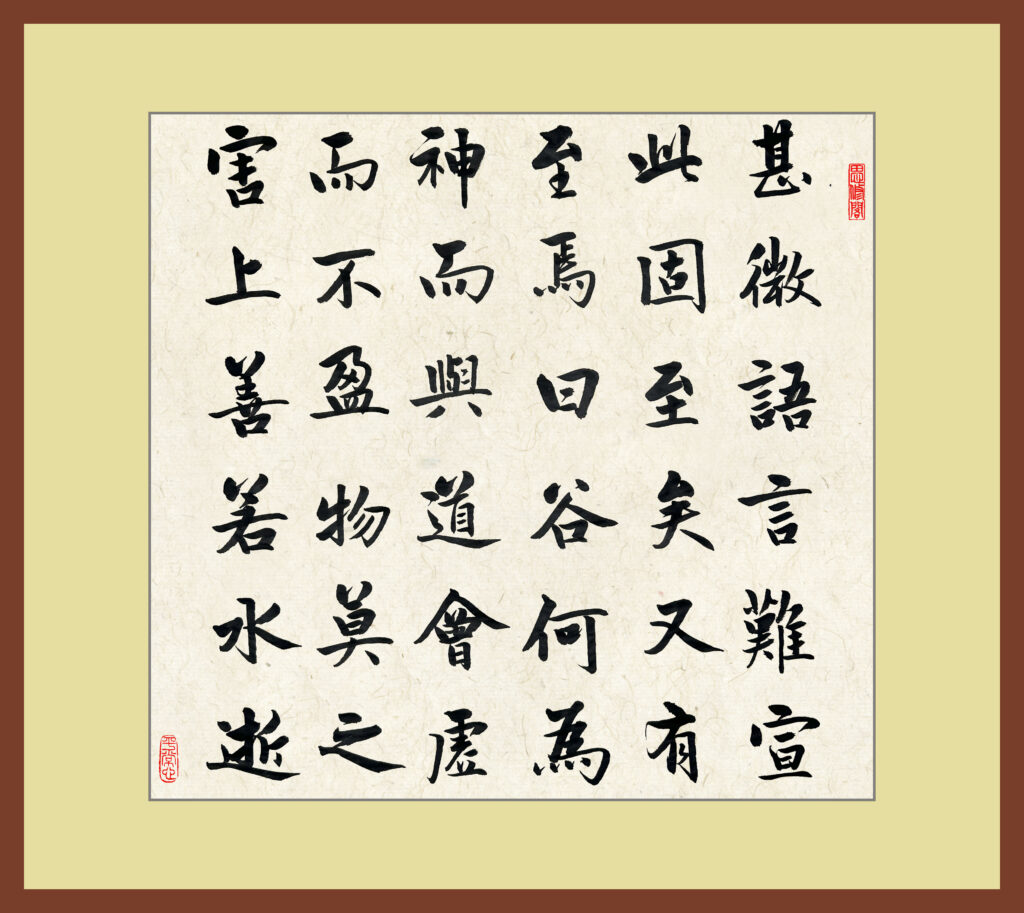 甚微語言難宣
此固至矣又有
至焉曰谷何為
神而與道會虛
而不盈物莫之
害上善若水逝
平常心